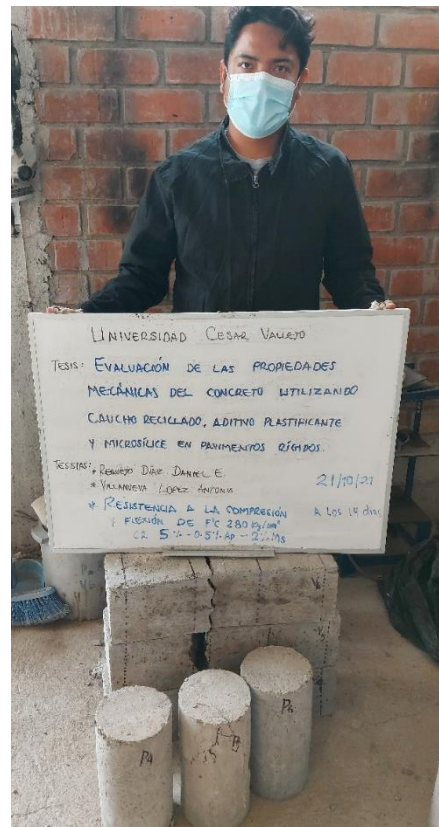 UNIVERSIDAD CESAR VALLEJO
TESIS: EVALUACIÓN DE LAS PROPIEDADES
MECÁNICAS DEL CONCRETO UTILIZANDO
CAUCHO RECICLADO, ADITIVO PLASTIFICANTE
Y MICROSÍLICE EN PAVIMENTOS RÍGIDOS.
TESISTAS: * DÍAZ DANIEL E.
* VILLANUEVA LOPEZ ANTONIA
21/10/21
* RESISTENCIA A LA COMPRESIÓN A LOS 14 días
Y FLEXIÓN DE F'C 280 kg/cm²
5% - 0.5% AP - 2% Ms
P4
P6